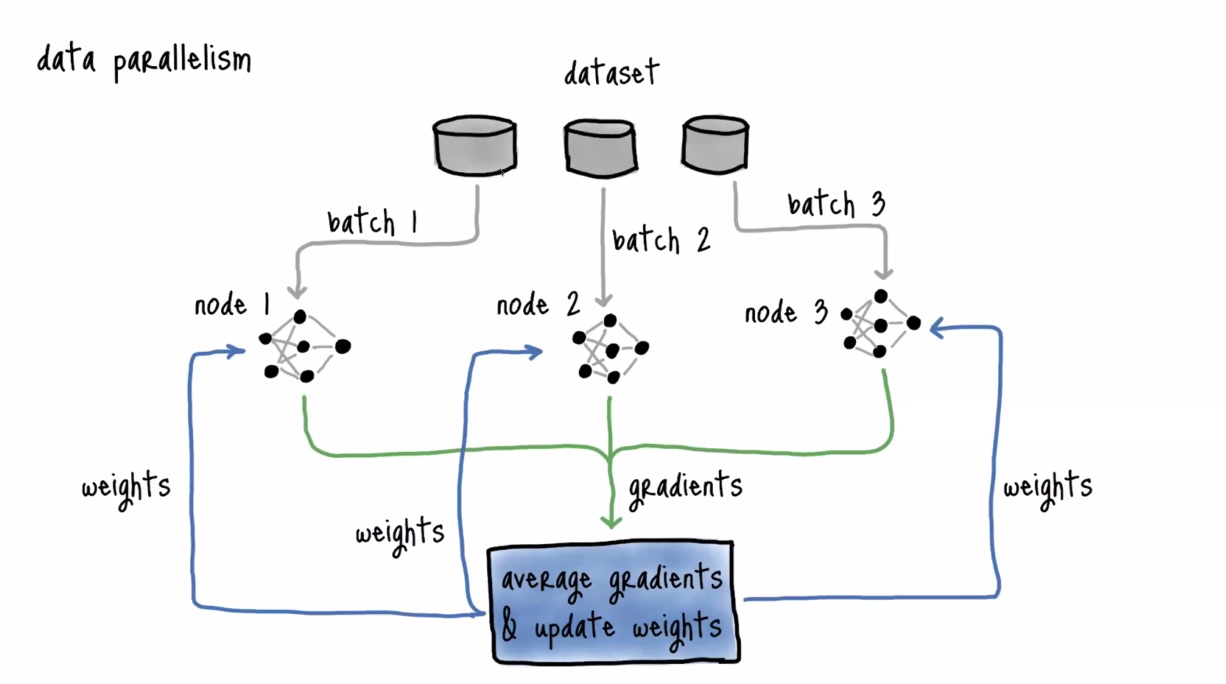 data parallelism
dataset
batch 1
batch 2
batch 3
node 1
node 2
node 3
weights
weights
gradients
weights
average gradients
& update weights